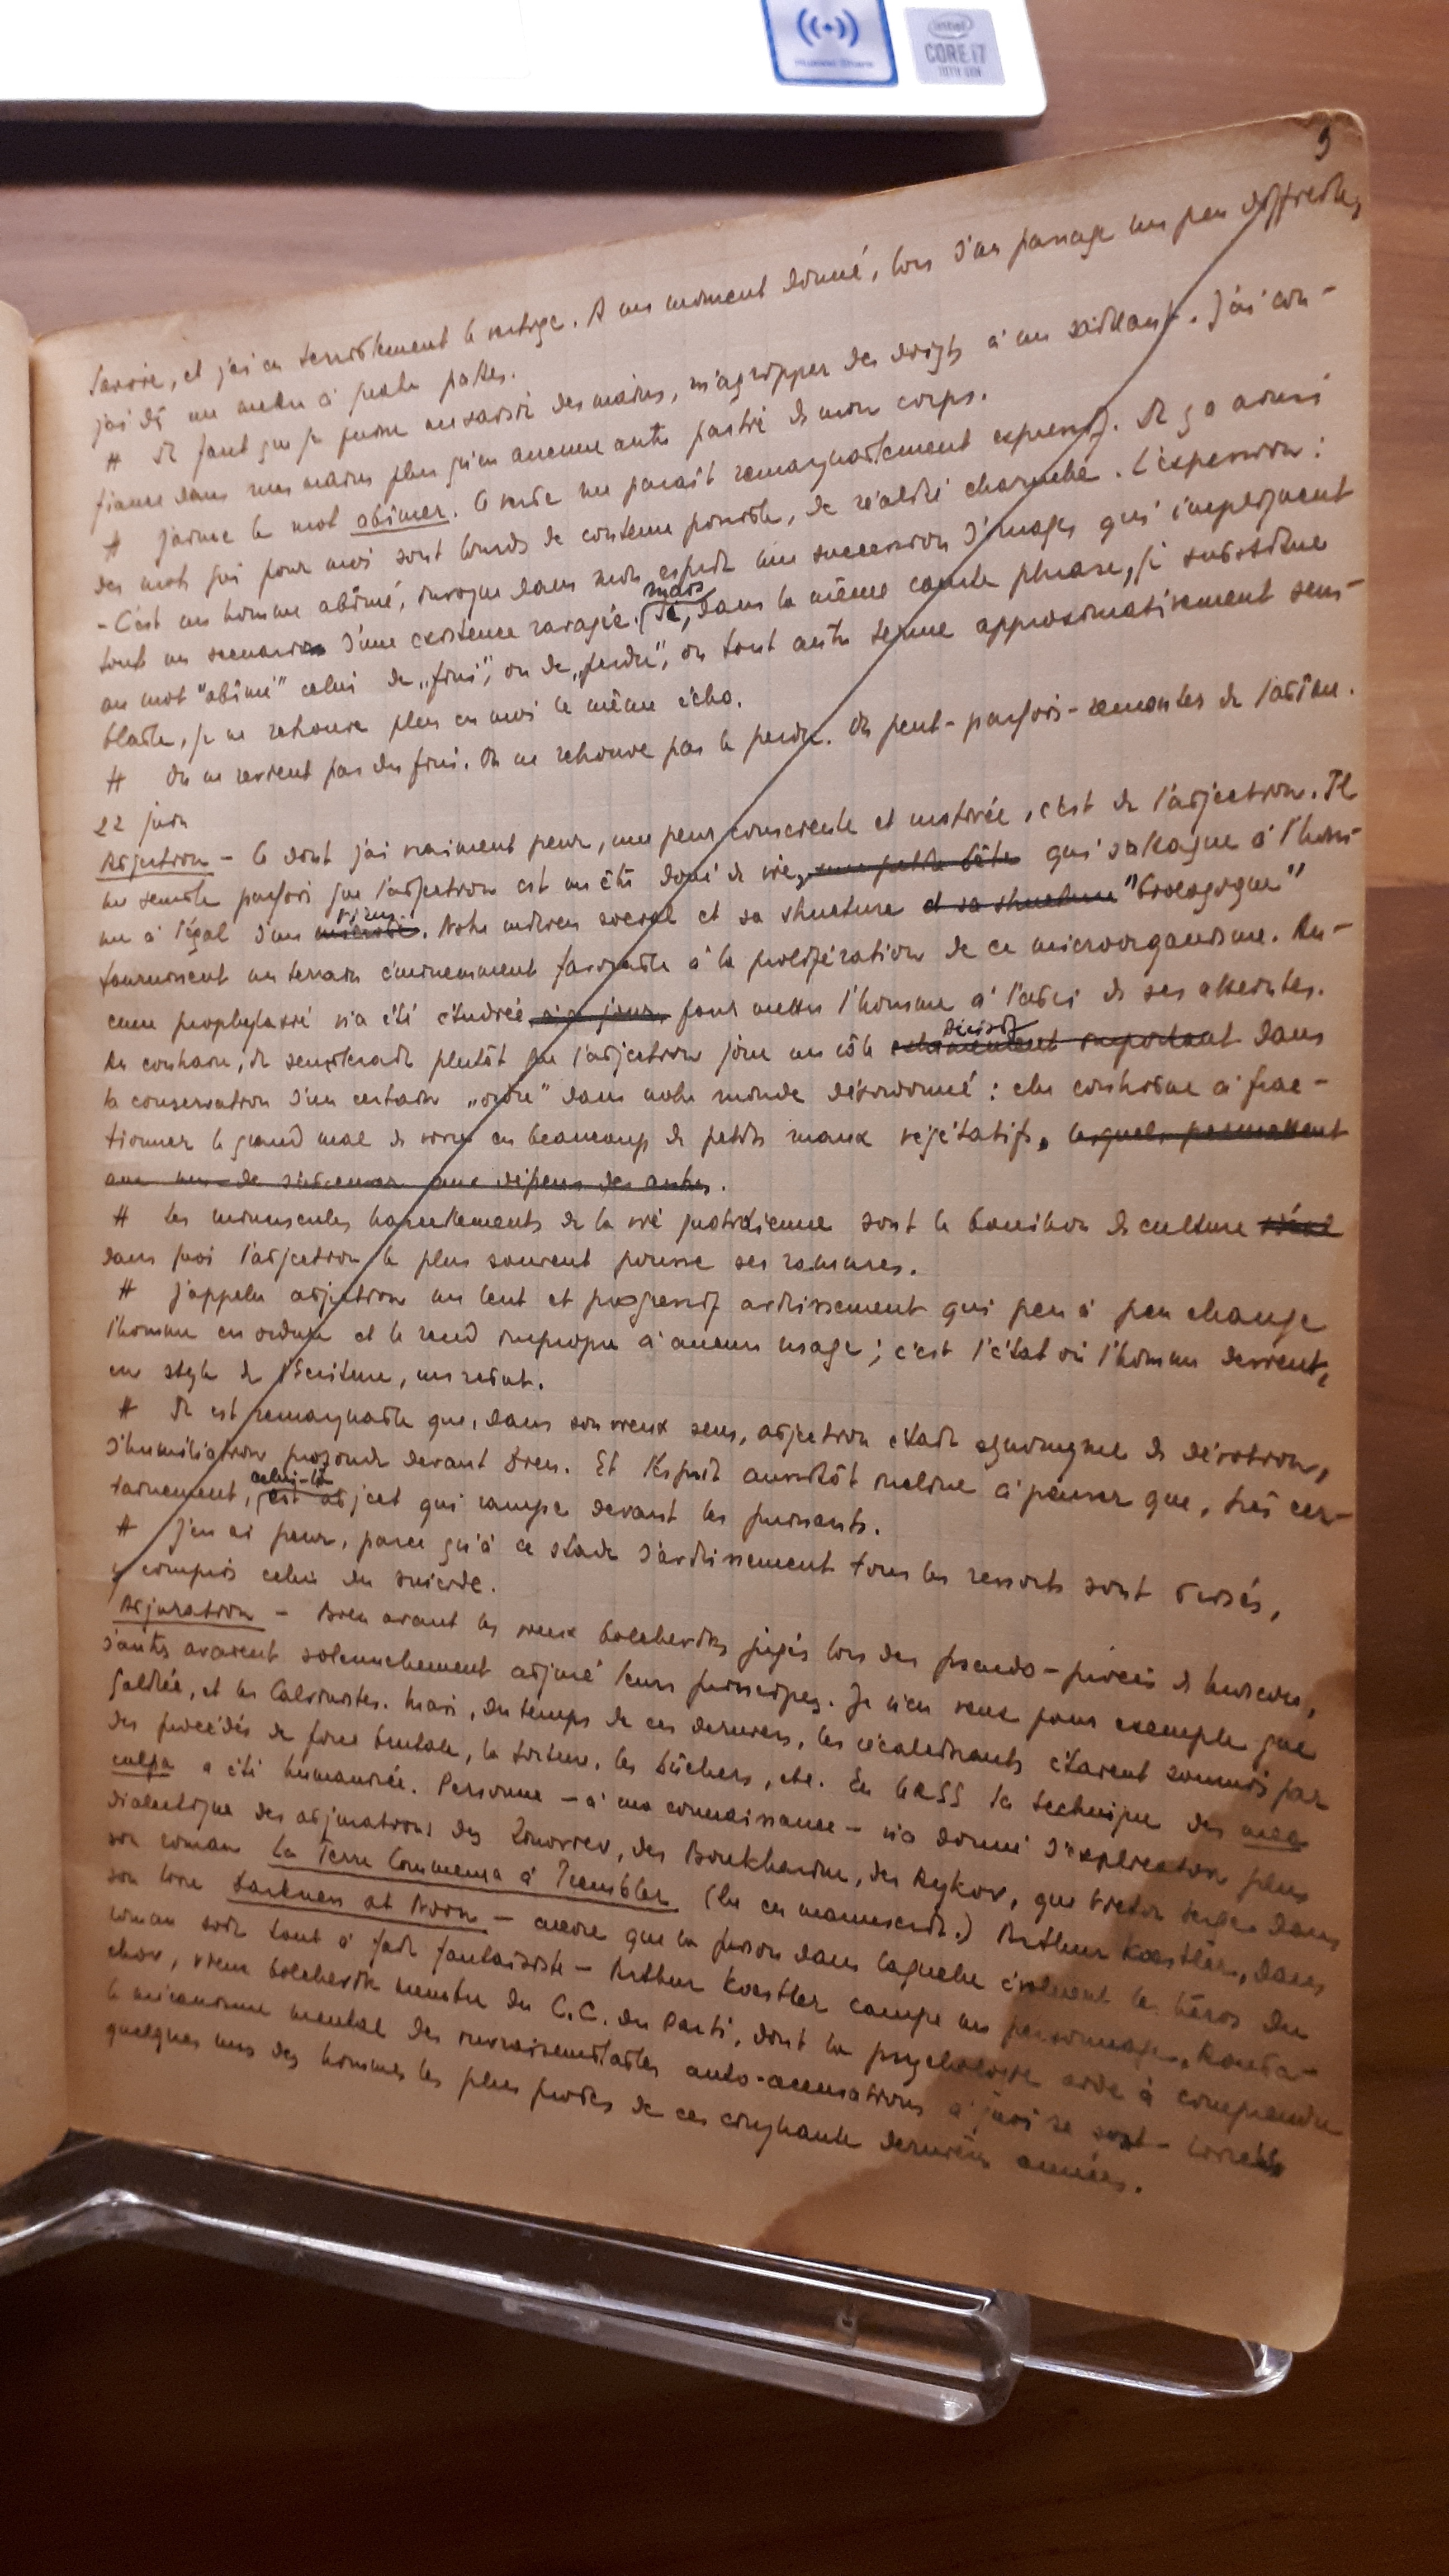 Huawei Share
intel
CORE i7
10TH GEN
9
Savoie, et j'ai eu terriblement le vertige. A un moment donné, lors d'un passage un peu difficile,
j'ai dû me mettre à quatre pattes.
# Il faut que je puisse me saisir des mains, m'agripper des doigts à un saillant. J'ai con-
fiance dans mes mains plus qu'en aucune autre partie de mon corps.
# J'aime le mot abîmer. Ce verbe me paraît remarquablement expressif. Il y a ainsi
des mots qui pour moi sont lourds de contenu possible, de réalité charnelle. L'expression :
- C'est un homme abîmé, évoque dans mon esprit une succession d'images qui impliquent
tout un scenario d'une existence ravagée. mais
(Si, dans la même courte phrase, je substitue
au mot "abîmé" celui de „fini", ou de „perdu", ou tout autre terme approximativement sem-
blable, je ne retrouve plus en moi le même écho.
# On ne revient pas du fini. On ne retrouve pas le perdu. On peut - parfois - remonter de l'abîme.
22 juin
Abjection - Ce dont j'ai vraiment peur, une peur consciente et motivée, c'est de l'abjection. Il
me semble parfois que l'abjection est un être doué de vie, une petite bête qui s'attaque à l'hom-
me à l'égal d'un microbe virus. Notre milieu social et sa structure et sa structure "biologique"
fournissent un terrain éminemment favorable à la prolifération de ce microorganisme. Au-
cune prophylaxie n'a été étudiée à ce jour pour mettre l'homme à l'abri de ses atteintes.
Au contraire, il semblerait plutôt que l'abjection joue un rôle décisif important dans
la conservation d'un certain „ordre" dans notre monde désordonné : elle contribue à frac-
tionner le grand mal de vivre en beaucoup de petits maux végétatifs, lesquels permettent
aux uns de subsister aux dépens des autres.
# Les minuscules harcèlements de la vie quotidienne sont le bouillon de culture
dans quoi l'abjection le plus souvent pousse ses racines.
# J'appelle abjection un lent et progressif avilissement qui peu à peu change
l'homme en ordure et le rend impropre à aucun usage ; c'est l'état où l'homme devient,
en style de l'Écriture, un rebut.
# Il est remarquable que, dans son vieux sens, abjection était synonyme de dévotion,
d'humiliation profonde devant Dieu. Et l'esprit aussitôt incline à penser que, très cer-
tainement, celui-là est abject qui rampe devant les puissants.
# J'en ai peur, parce qu'à ce stade d'avilissement tous les ressorts sont brisés,
y compris celui du suicide.
Abjuration - Bien avant les vieux bolcheviks jugés lors des pseudo-procès de Moscou,
d'autres avaient solennellement abjuré leurs principes. Je n'en veux pour exemple que
Galilée, et les Calvinistes. Mais, du temps de ces derniers, les récalcitrants étaient soumis par
des procédés de force brutale, la torture, les bûchers, etc. En URSS la technique des mea
culpa a été humanisée. Personne - à ma connaissance - n'a donné d'explication plus
dialectique des abjurations des Zinoviev, des Boukharine, des Rykov, que Victor Serge dans
son roman La Terre Commença à Trembler (lu en manuscrit.) Arthur Koestler, dans
son livre Darkness at Noon - encore que la prison dans laquelle évoluent les héros du
roman soit tout à fait fantaisiste - Arthur Koestler campe un personnage, Rouba-
chov, vieux bolchevik membre du C.C. du Parti, dont la psychologie aide à comprendre
le mécanisme mental des invraisemblables auto-accusations à quoi se sont livrés
quelques uns des hommes les plus probes de ces cinquante dernières années.